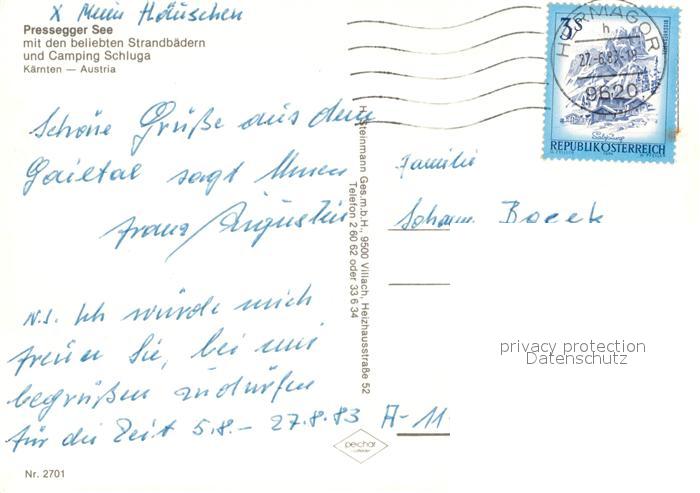 X Mein Häuschen
Pressegger See
mit den beliebten Strandbädern
und Camping Schluga
Kärnten — Austria
Schöne Grüße aus dem
Gailtal sagt Ihnen
Franz Augustin
N.S. Ich würde mich
freuen Sie, bei mir
begrüßen zu dürfen
für die Zeit 5.8. – 27.8.83
A-11
Nr. 2701
H. Steinmann Ges.m.b.H., 9500 Villach, Heizhausstraße 52
Telefon 2 60 62 oder 33 6 34
Familie
Johann Boeck
3S
HERMAGOR
h
9620
REPUBLIK ÖSTERREICH
privacy protection
Datenschutz